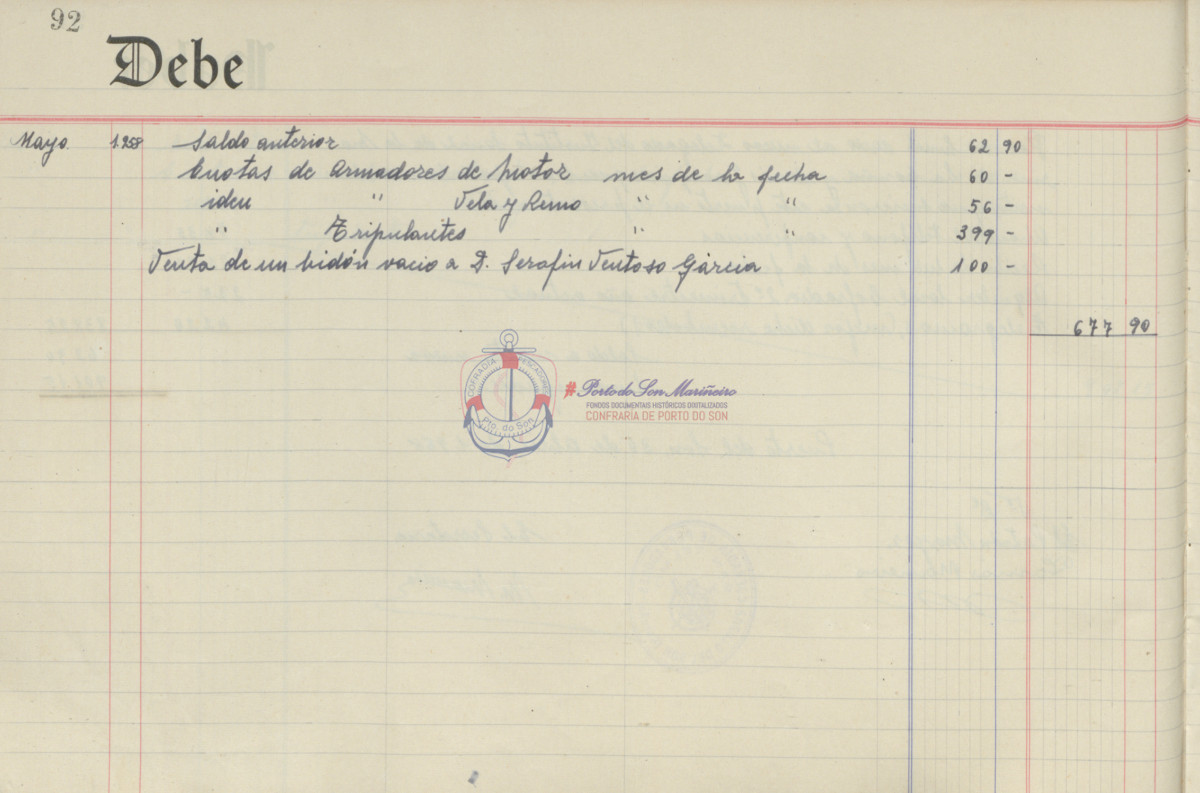 92
Debe
Mayo. 1.958 Saldo anterior 62 90
Cuotas de Armadores de Motor mes de la fecha 60 -
idem " Vela y Remo " " 56 -
" Tripulantes " " 399 -
Venta de un bidón vacio a D. Serafin Ventoso Gárcia 100 -
677 90
COFRADIA PESCADORES
Pto. do Son
#Porto do Son Mariñeiro
FONDOS DOCUMENTAIS HISTÓRICOS DIXITALIZADOS
CONFRARIA DE PORTO DO SON